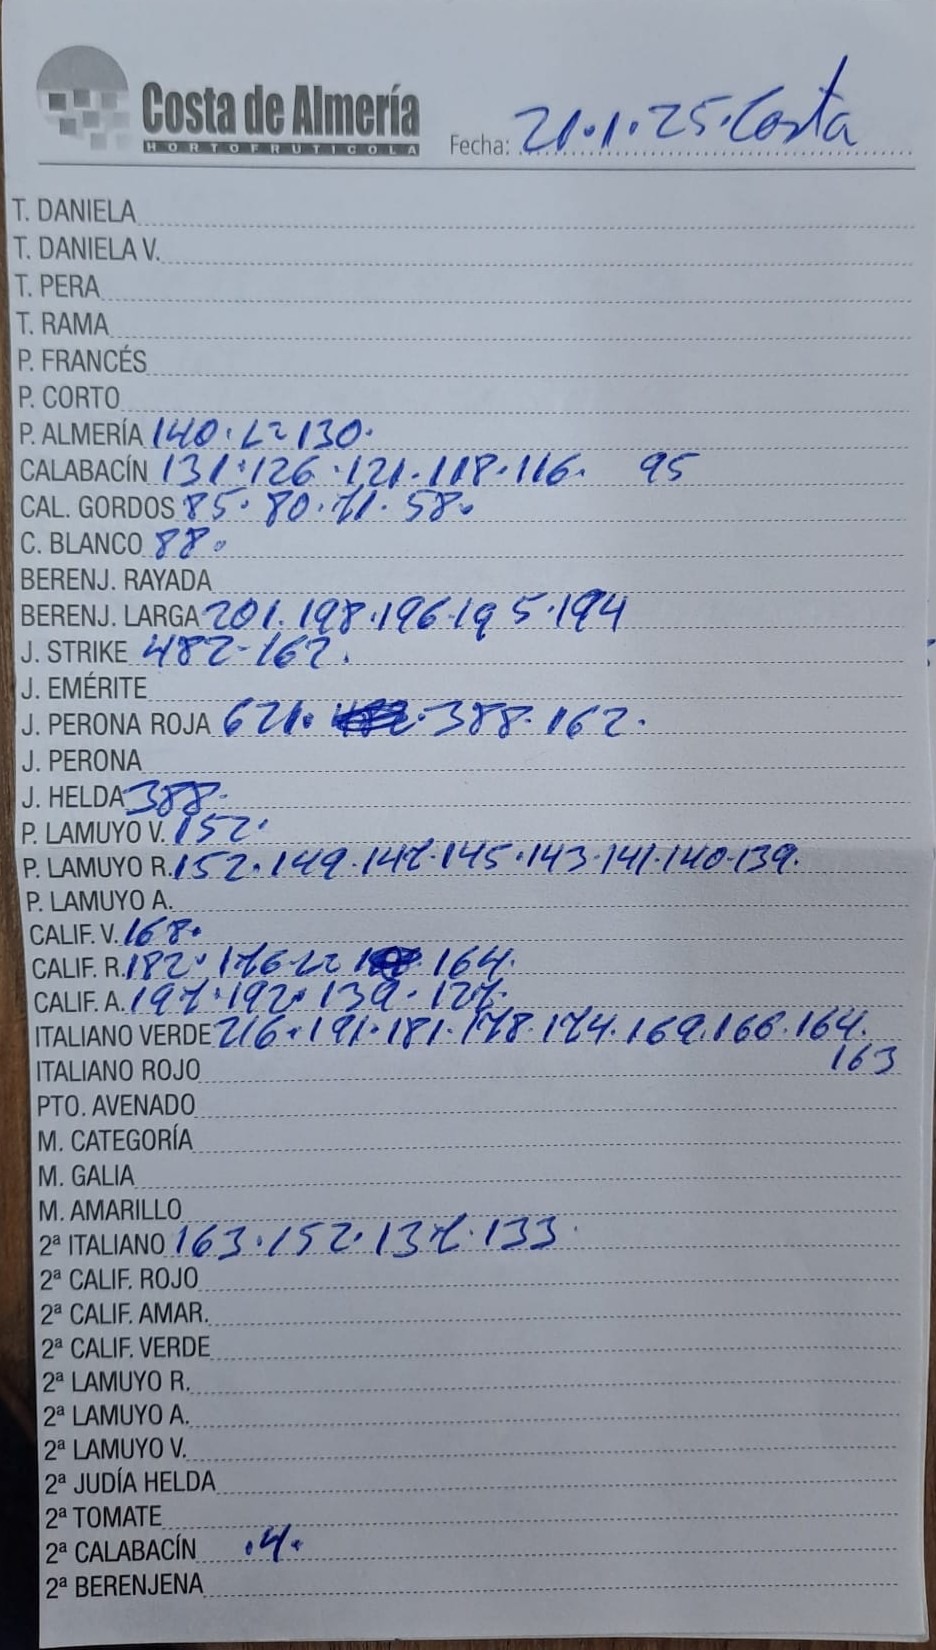 Costa de Almería
HORTOFRUTICOLA
Fecha: 21.1.25. Costa
T. DANIELA
T. DANIELA V.
T. PERA
T. RAMA
P. FRANCÉS
P. CORTO
P. ALMERÍA 140. L2 130.
CALABACÍN 131. 126. 121. 118. 116. 95
CAL. GORDOS 85. 80. 71. 58.
C. BLANCO 88.
BERENJ. RAYADA
BERENJ. LARGA 201. 198. 196. 195. 194
J. STRIKE 482- 162.
J. EMÉRITE
J. PERONA ROJA 621. 388. 162.
J. PERONA
J. HELDA 388.
P. LAMUYO V. 152.
P. LAMUYO R. 152. 149. 147. 145. 143. 141. 140. 139.
P. LAMUYO A.
CALIF. V. 168.
CALIF. R. 182. 176- L2 164.
CALIF. A. 197. 192. 139. 127.
ITALIANO VERDE 216. 191. 181. 178. 174. 169. 166. 164.
163
ITALIANO ROJO
PTO. AVENADO
M. CATEGORÍA
M. GALIA
M. AMARILLO
2ª ITALIANO 163. 152. 137. 133
2ª CALIF. ROJO
2ª CALIF. AMAR.
2ª CALIF. VERDE
2ª LAMUYO R.
2ª LAMUYO A.
2ª LAMUYO V.
2ª JUDÍA HELDA
2ª TOMATE
2ª CALABACÍN .4.
2ª BERENJENA